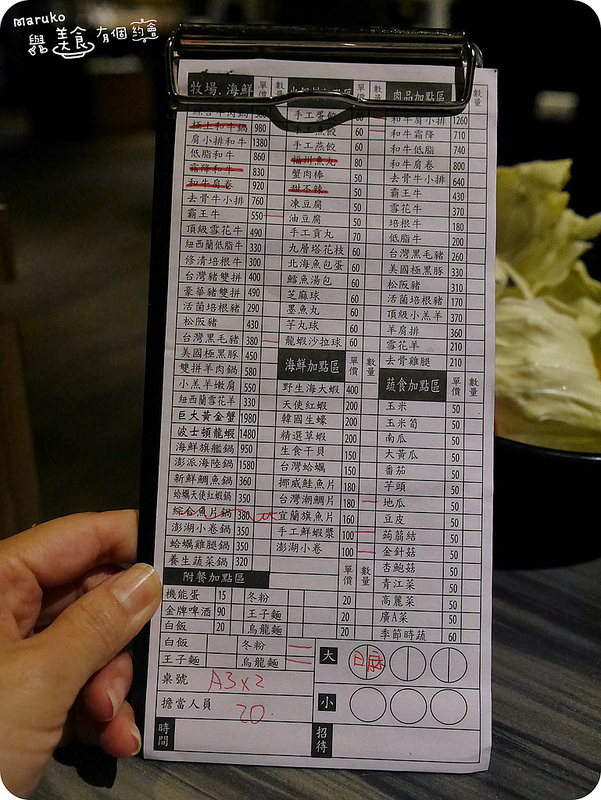 maruko
與美食有個約會
牧場.海鮮 單價 數量
綜合牛肉鍋
極上和牛鍋 980
肩小排和牛 1380
低脂和牛 860
霜降和牛 830
和牛肩卷 920
去骨牛小排 760
霸王牛 550
頂級雪花牛 490
紐西蘭低脂牛 330
修清培根牛 300
台灣豬雙拼 400
豪華豬雙拼 490
活菌培根豬 290
松阪豬 430
台灣黑毛豬 380
美國極黑豚 450
雙拼羊肉鍋 580
小羔羊嫩肩 550
紐西蘭雪花羊 330
巨大黃金蟹 1980
波士頓龍蝦 1480
海鮮旗艦鍋 950
澎派海陸鍋 580
新鮮鯛魚鍋 350
蛤蠣天使紅蝦鍋 350
綜合魚片鍋 380
澎湖小卷鍋 350
蛤蠣雞腿鍋 350
養生蔬菜鍋 320
手工蛋餃
手工魚餃
手工燕餃 60
福州魚丸 80
蟹肉棒 50
甜不辣 50
凍豆腐 50
油豆腐 50
手工貢丸 70
九層塔花枝 60
北海魚包蛋 60
鱈魚湯包 60
芝麻球 60
墨魚丸 60
芋丸球 60
龍蝦沙拉球 60
海鮮加點區 單價 數量
野生海大蝦 400
天使紅蝦 200
韓國生蠔 200
精選草蝦 200
生食干貝 150
台灣蛤蠣 150
挪威鮭魚片 180
台灣潮鯛片 180
宜蘭旗魚片 160
手工鮮蝦漿 100
澎湖小卷 100
肉品加點區 單價 數量
和牛肩小排 1260
和牛霜降 710
和牛低脂 740
和牛肩卷 800
去骨牛小排 640
霸王牛 430
雪花牛 370
培根牛 180
低脂牛 200
台灣黑毛豬 260
美國極黑豚 330
松阪豬 310
活菌培根豬 170
頂級小羔羊 370
羊肩排 360
雪花羊 210
去骨雞腿 210
蔬食加點區 單價 數量
玉米 50
玉米筍 50
南瓜 50
大黃瓜 50
番茄 50
芋頭 50
地瓜 50
豆皮 50
蒟蒻結 50
金針菇 50
杏鮑菇 50
青江菜 50
高麗菜 50
廣A菜 50
季節時蔬 60
附餐加點區 單價 數量
機能蛋 15 冬粉 20
金牌啤酒 90 王子麵 20
白飯 20 烏龍麵 20
白飯 冬粉
王子麵 烏龍麵
大 白 麻
桌號 A3x2
小
擔當人員 20
時間 招待